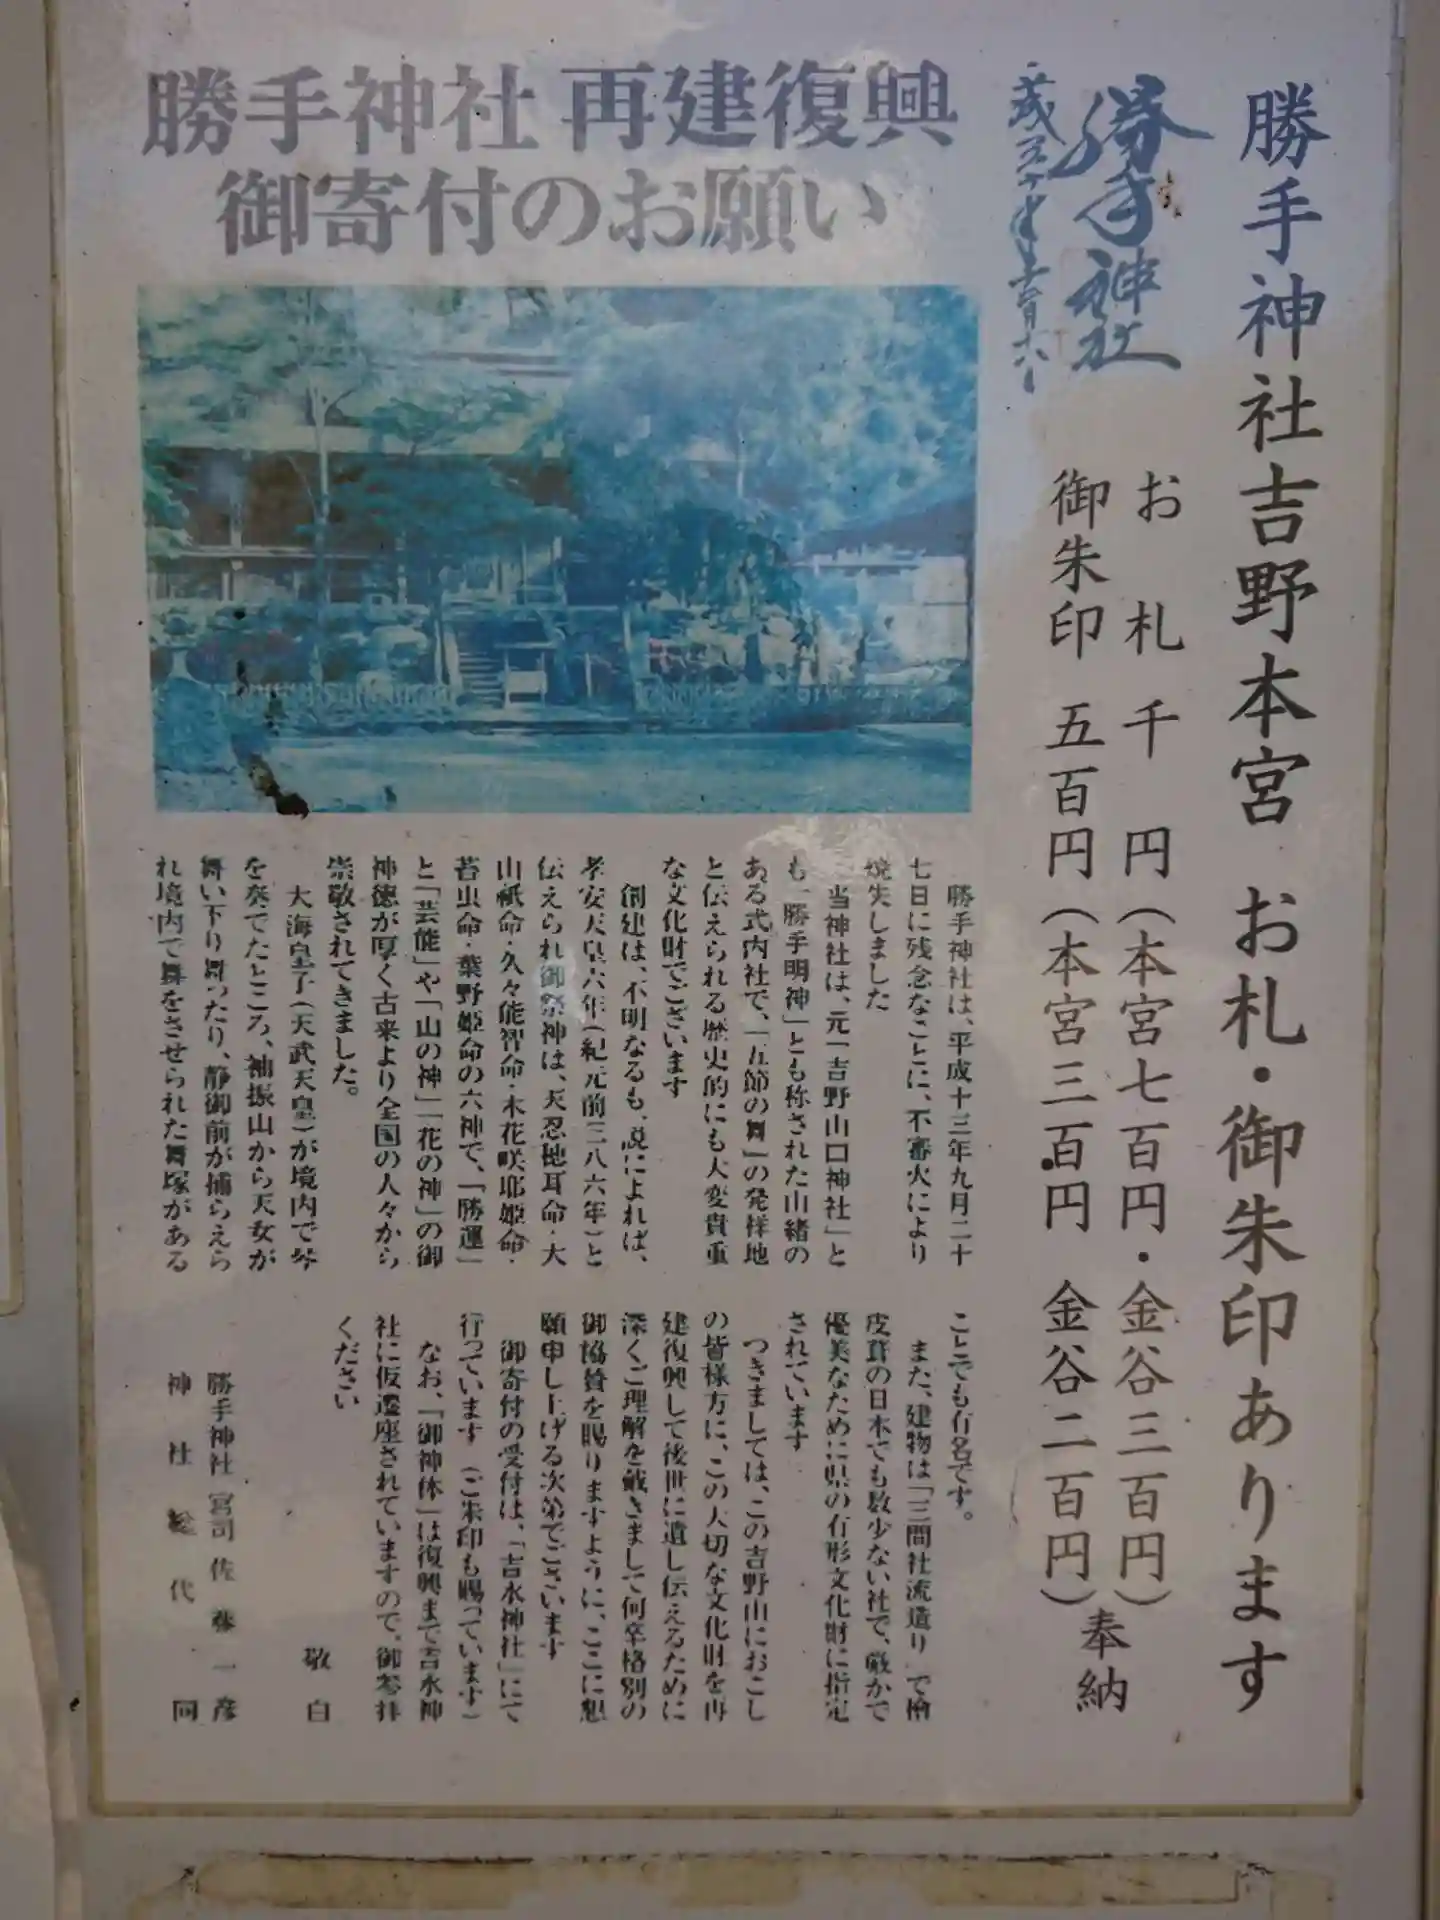 勝手神社吉野本宮 お札・御朱印あります
お札 千円(本宮七百円・金谷三百円)
御朱印 五百円(本宮三百円 金谷二百円)
奉納
勝手神社
勝手神社 再建復興
御寄付のお願い
勝手神社は、平成十三年九月二十
七日に残念なことに、不審火により
焼失しました
当神社は、元「吉野山口神社」と
も「勝手明神」とも称された由緒の
ある式内社で、「五節の舞」の発祥地
と伝えられる歴史的にも大変貴重
な文化財でございます
創建は、不明なるも、説によれば、
孝安天皇六年(紀元前三八六年)と
伝えられ御祭神は、天忍穂耳命・大
山祇命・久々能智命・木花咲耶姫命・
苔虫命・葉野姫命の六神で、「勝運」
と「芸能」や「山の神」「花の神」の御
神徳が厚く古来より全国の人々から
崇敬されてきました。
大海皇子(天武天皇)が境内で琴
を奏でたところ、袖振山から天女が
舞い下り舞ったり、静御前が捕らえら
れ境内で舞をさせられた舞塚がある
ことでも有名です。
また、建物は「三間社流造り」で檜
皮葺の日本でも数少ない社で、厳かで
優美なために県の有形文化財に指定
されています
つきましては、この吉野山におこし
の皆様方に、この大切な文化財を再
建復興して後世に遺し伝えるために
深くご理解を戴きまして何卒格別の
御協賛を賜りますように、ここに懇
願申し上げる次第でございます
御寄付の受付は、「吉水神社」にて
行っています(ご朱印も賜っています)
なお、「御神体」は復興まで吉水神
社に仮遷座されていますので、御参拝
ください
敬白
勝手神社 宮司 佐藤一彦
神社総代一同